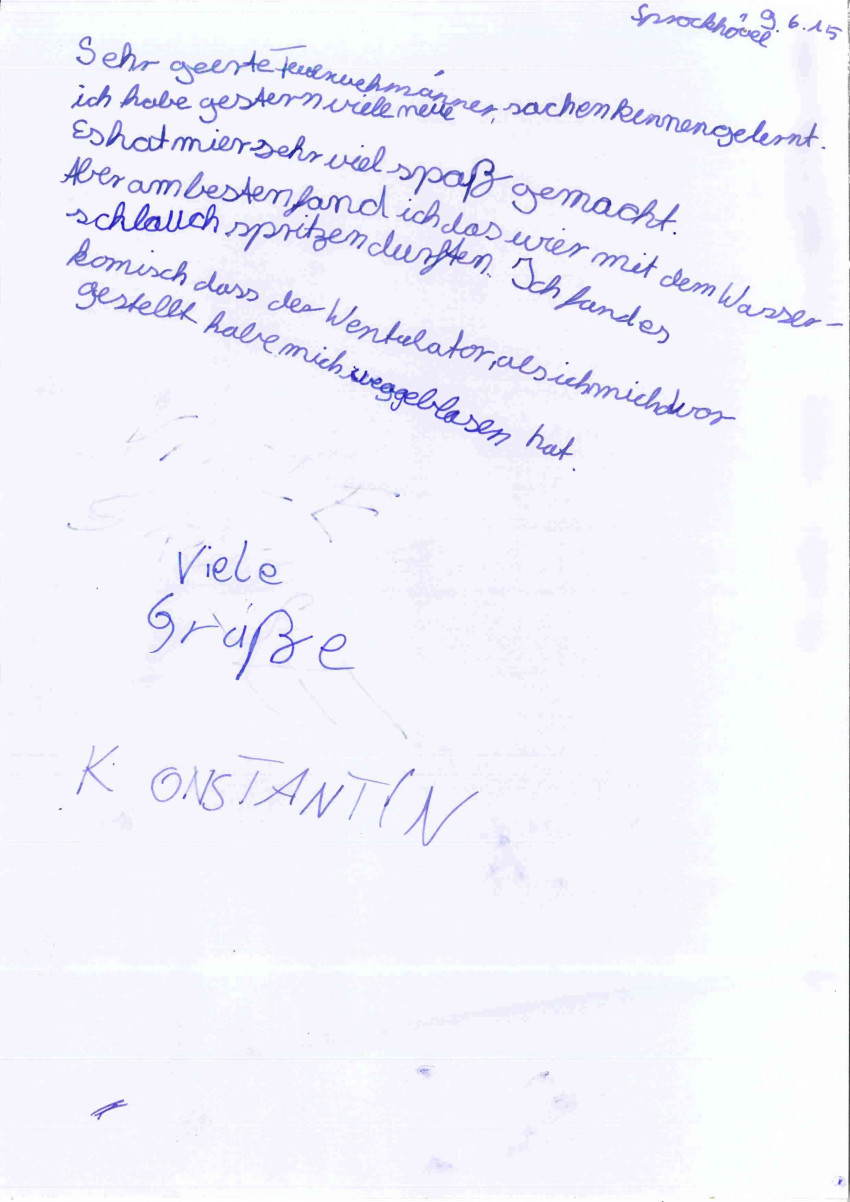 Sprockhövel, 9.6.15
Sehr geerte Feuerwehmänner,
ich habe gestern viele neue sachen kennengelernt.
Es hat mier sehr viel spaß gemacht.
Aber am besten fand ich das wier mit dem Wasser-
schlauch spritzen durften. Ich fand es
komisch dass der Wentulator, als ich mich davor
gestellt habe mich weggeblasen hat.
Viele
Grüße
KONSTANTIN